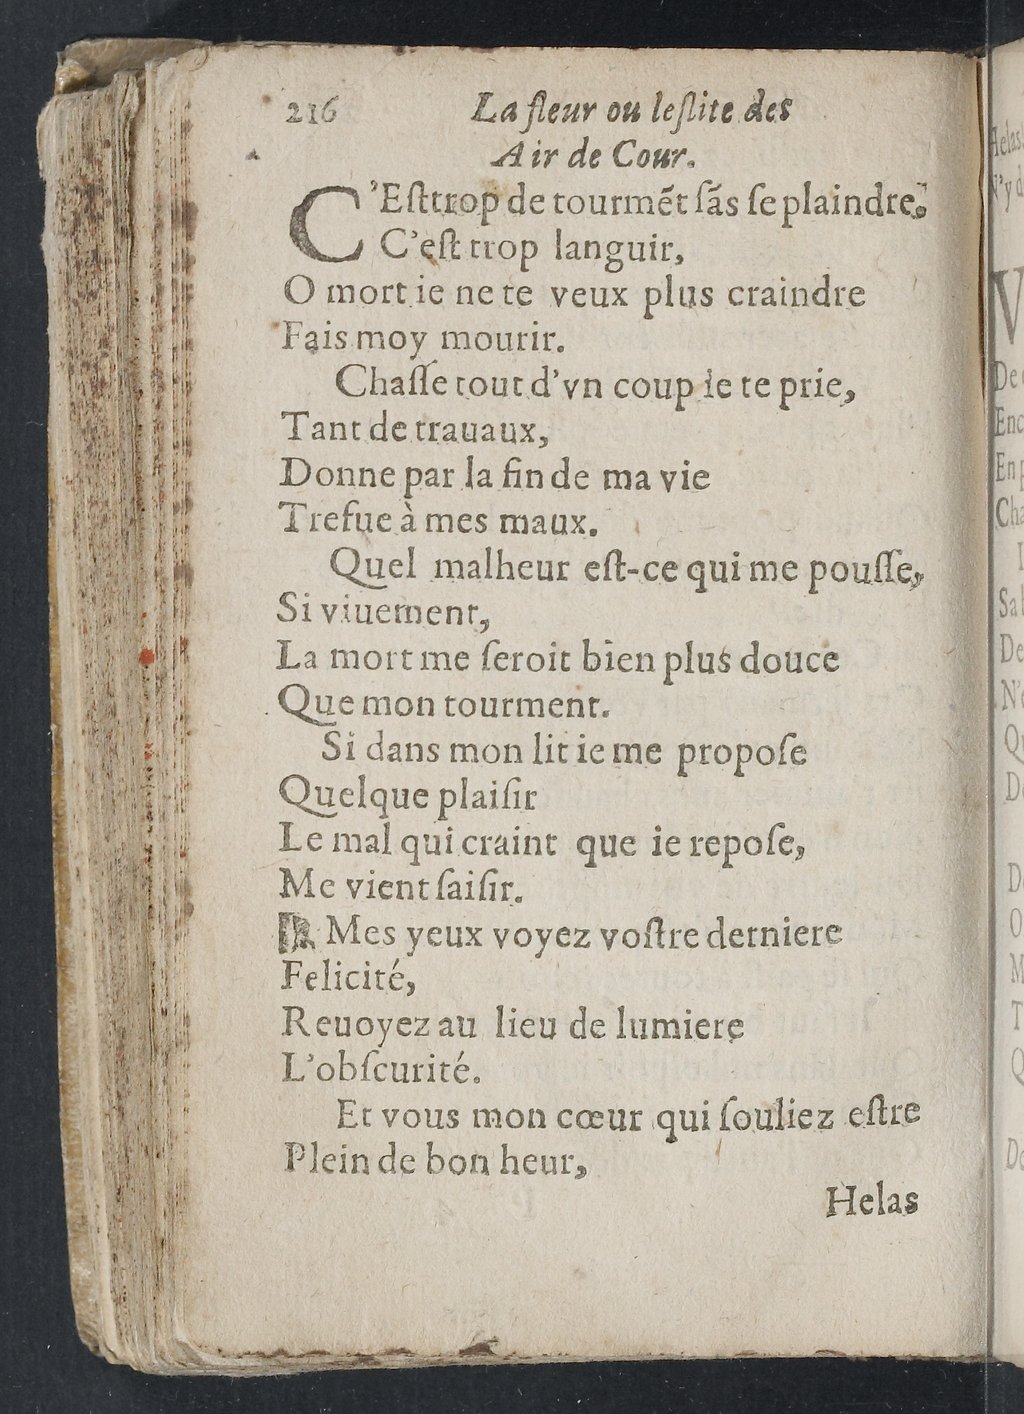 216 La fleur ou leſlite des
Air de Cour.
C'Eſt trop de tourmẽt ſãs ſe plaindre.
C'eſt trop languir,
O mort ie ne te veux plus craindre
Fais moy mourir.
Chaſſe tout d'vn coup ie te prie,
Tant de trauaux,
Donne par la fin de ma vie
Trefue à mes maux.
Quel malheur eſt-ce qui me pouſſe,
Si viuement,
La mort me ſeroit bien plus douce
Que mon tourment.
Si dans mon lit ie me propoſe
Quelque plaiſir
Le mal qui craint que ie repoſe,
Me vient ſaiſir.
Mes yeux voyez voſtre derniere
Felicité,
Reuoyez au lieu de lumiere
L'obſcurité.
Et vous mon cœur qui ſouliez eſtre
Plein de bon heur,
Helas